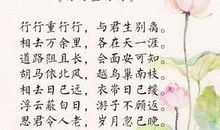 行行重行行，与君生别离。
相去万余里，各在天一涯。
道路阻且长，会面安可知。
胡马依北风，越鸟巢南枝。
相去日已远，衣带日已缓。
浮云蔽白日，游子不顾返。
思君令人老，岁月忽已晚。